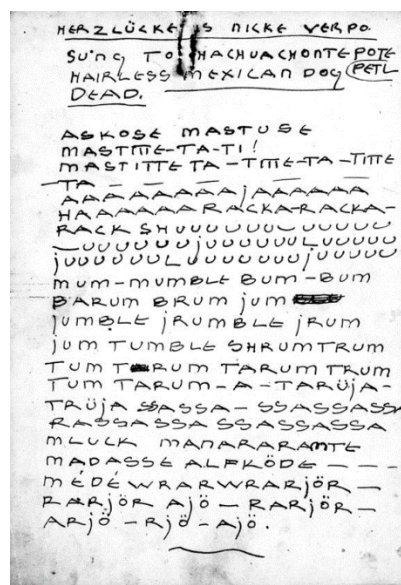 HERZLÜCKE IS NICKE VERPO.
SUNG TO HACHUACHONTEPOTE
HAIRLESS MEXICAN DOG PETL
DEAD.
ASKOSE MASTUSE
MASTME-TA-TI!
MASTITTE TA-TME-TA-TITTE
TA — — — — —
AAAAAAAAAjAAAAAA
HAAAAAA RACKA-RACKA-
RACK SHUUUUUUUUUUU
jUMBLE jRUMBLE jRUM
MUM-MUMBLE BUM-BUM
BARUM BRUM jUM
jUM TUMBLE SHRUMTRUM
TUM TARUM TARUMTRUM
TUM TARUM-A-TARÜjA-
TRÜjA SSASSA-SSASSASSA
RASSASSA SSASSASSA
MLUCK MANARARANTE
MADASSE ALFKÖDE — — —
MÉDÉWRARWRARjÖR —
RARjÖR AjÖ — RARjÖR —
ARjÖ — RjÖ — AjÖ.